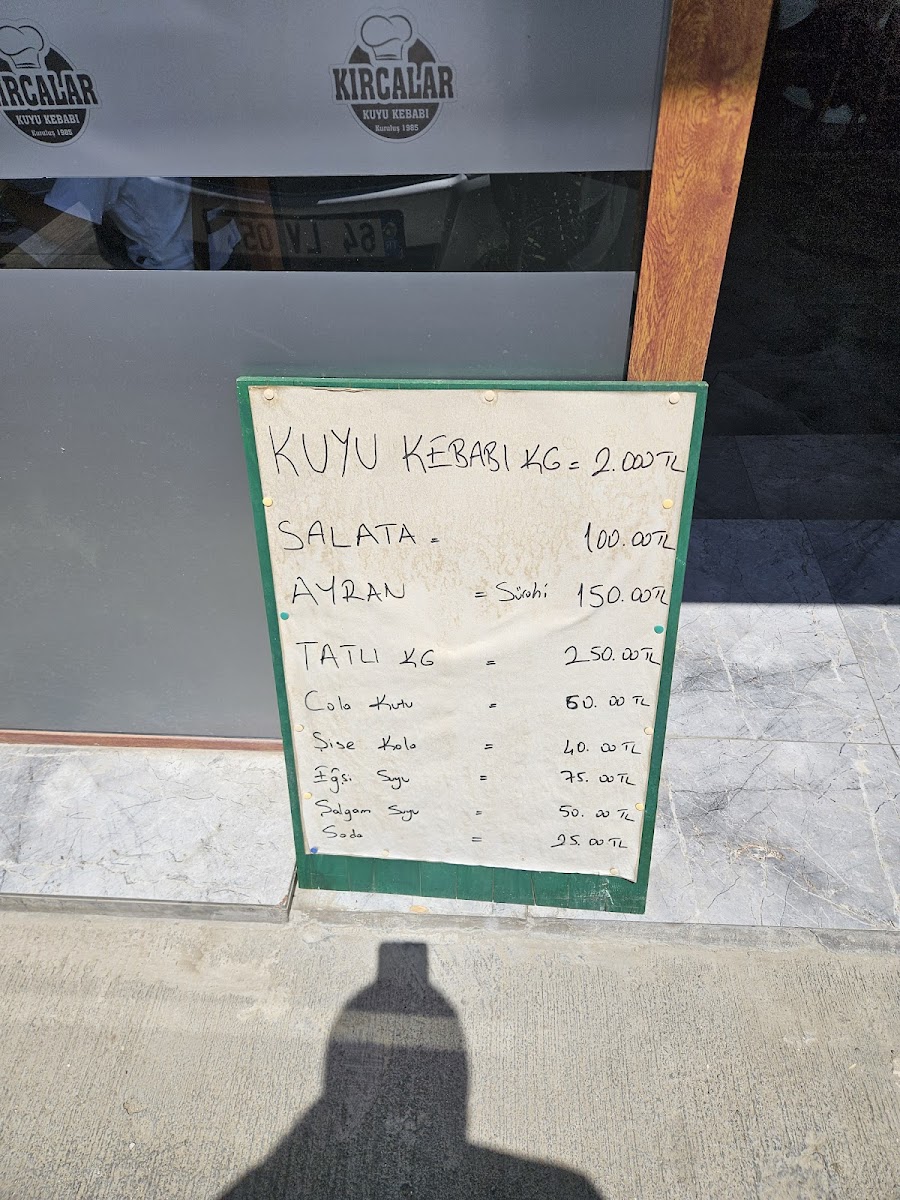 KIRCALAR
KUYU KEBABI
Kuruluş 1985
KIRCALAR
KUYU KEBABI
Kuruluş 1985
KUYU KEBABI KG = 2.000 TL
SALATA = 100.00 TL
AYRAN = Sürahi 150.00 TL
TATLI KG = 250.00 TL
Cola Kutu = 60.00 TL
Şişe Kola = 40.00 TL
Eğşi Suyu = 75.00 TL
Şalgam Suyu = 50.00 TL
Soda = 25.00 TL